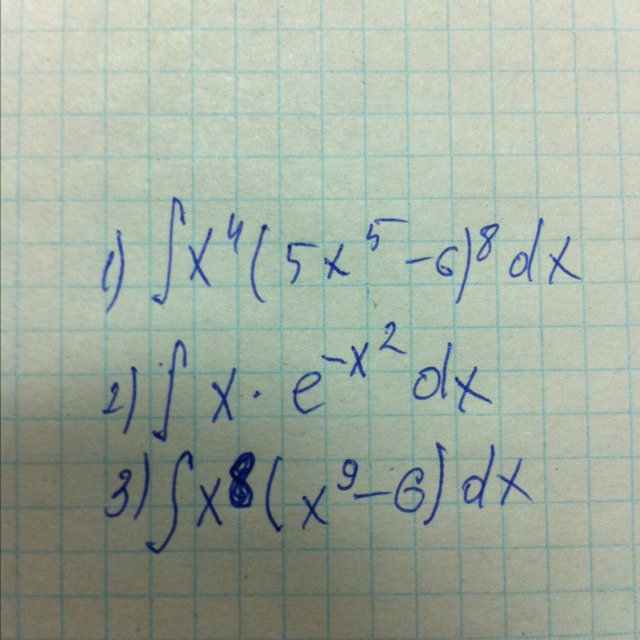 1) ∫x⁴(5x⁵-6)⁸dx
2) ∫x·e^{-x²}dx
3) ∫x8(x⁹-6)dx